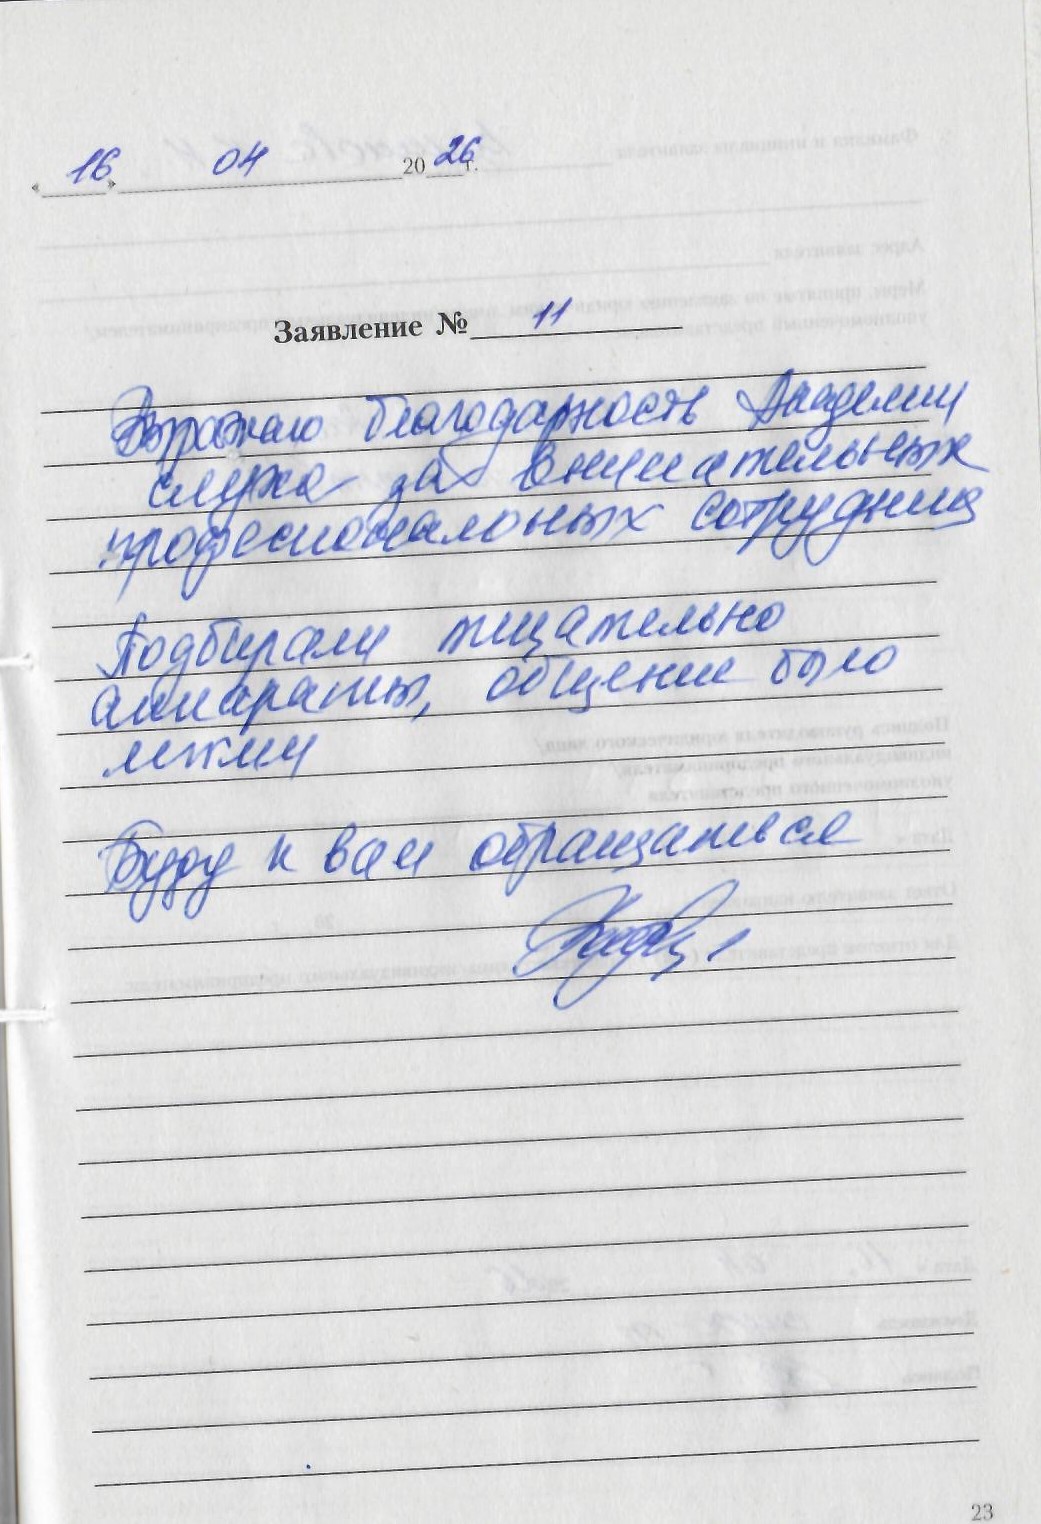 « 16 » 04 20 26 г.
Заявление № 11
Выражаю благодарность Академии
слуха за внимательных
професиональных сотрудниц
Подбирали тщательно
аппараты, общение было
Буду к вам обращаться
23